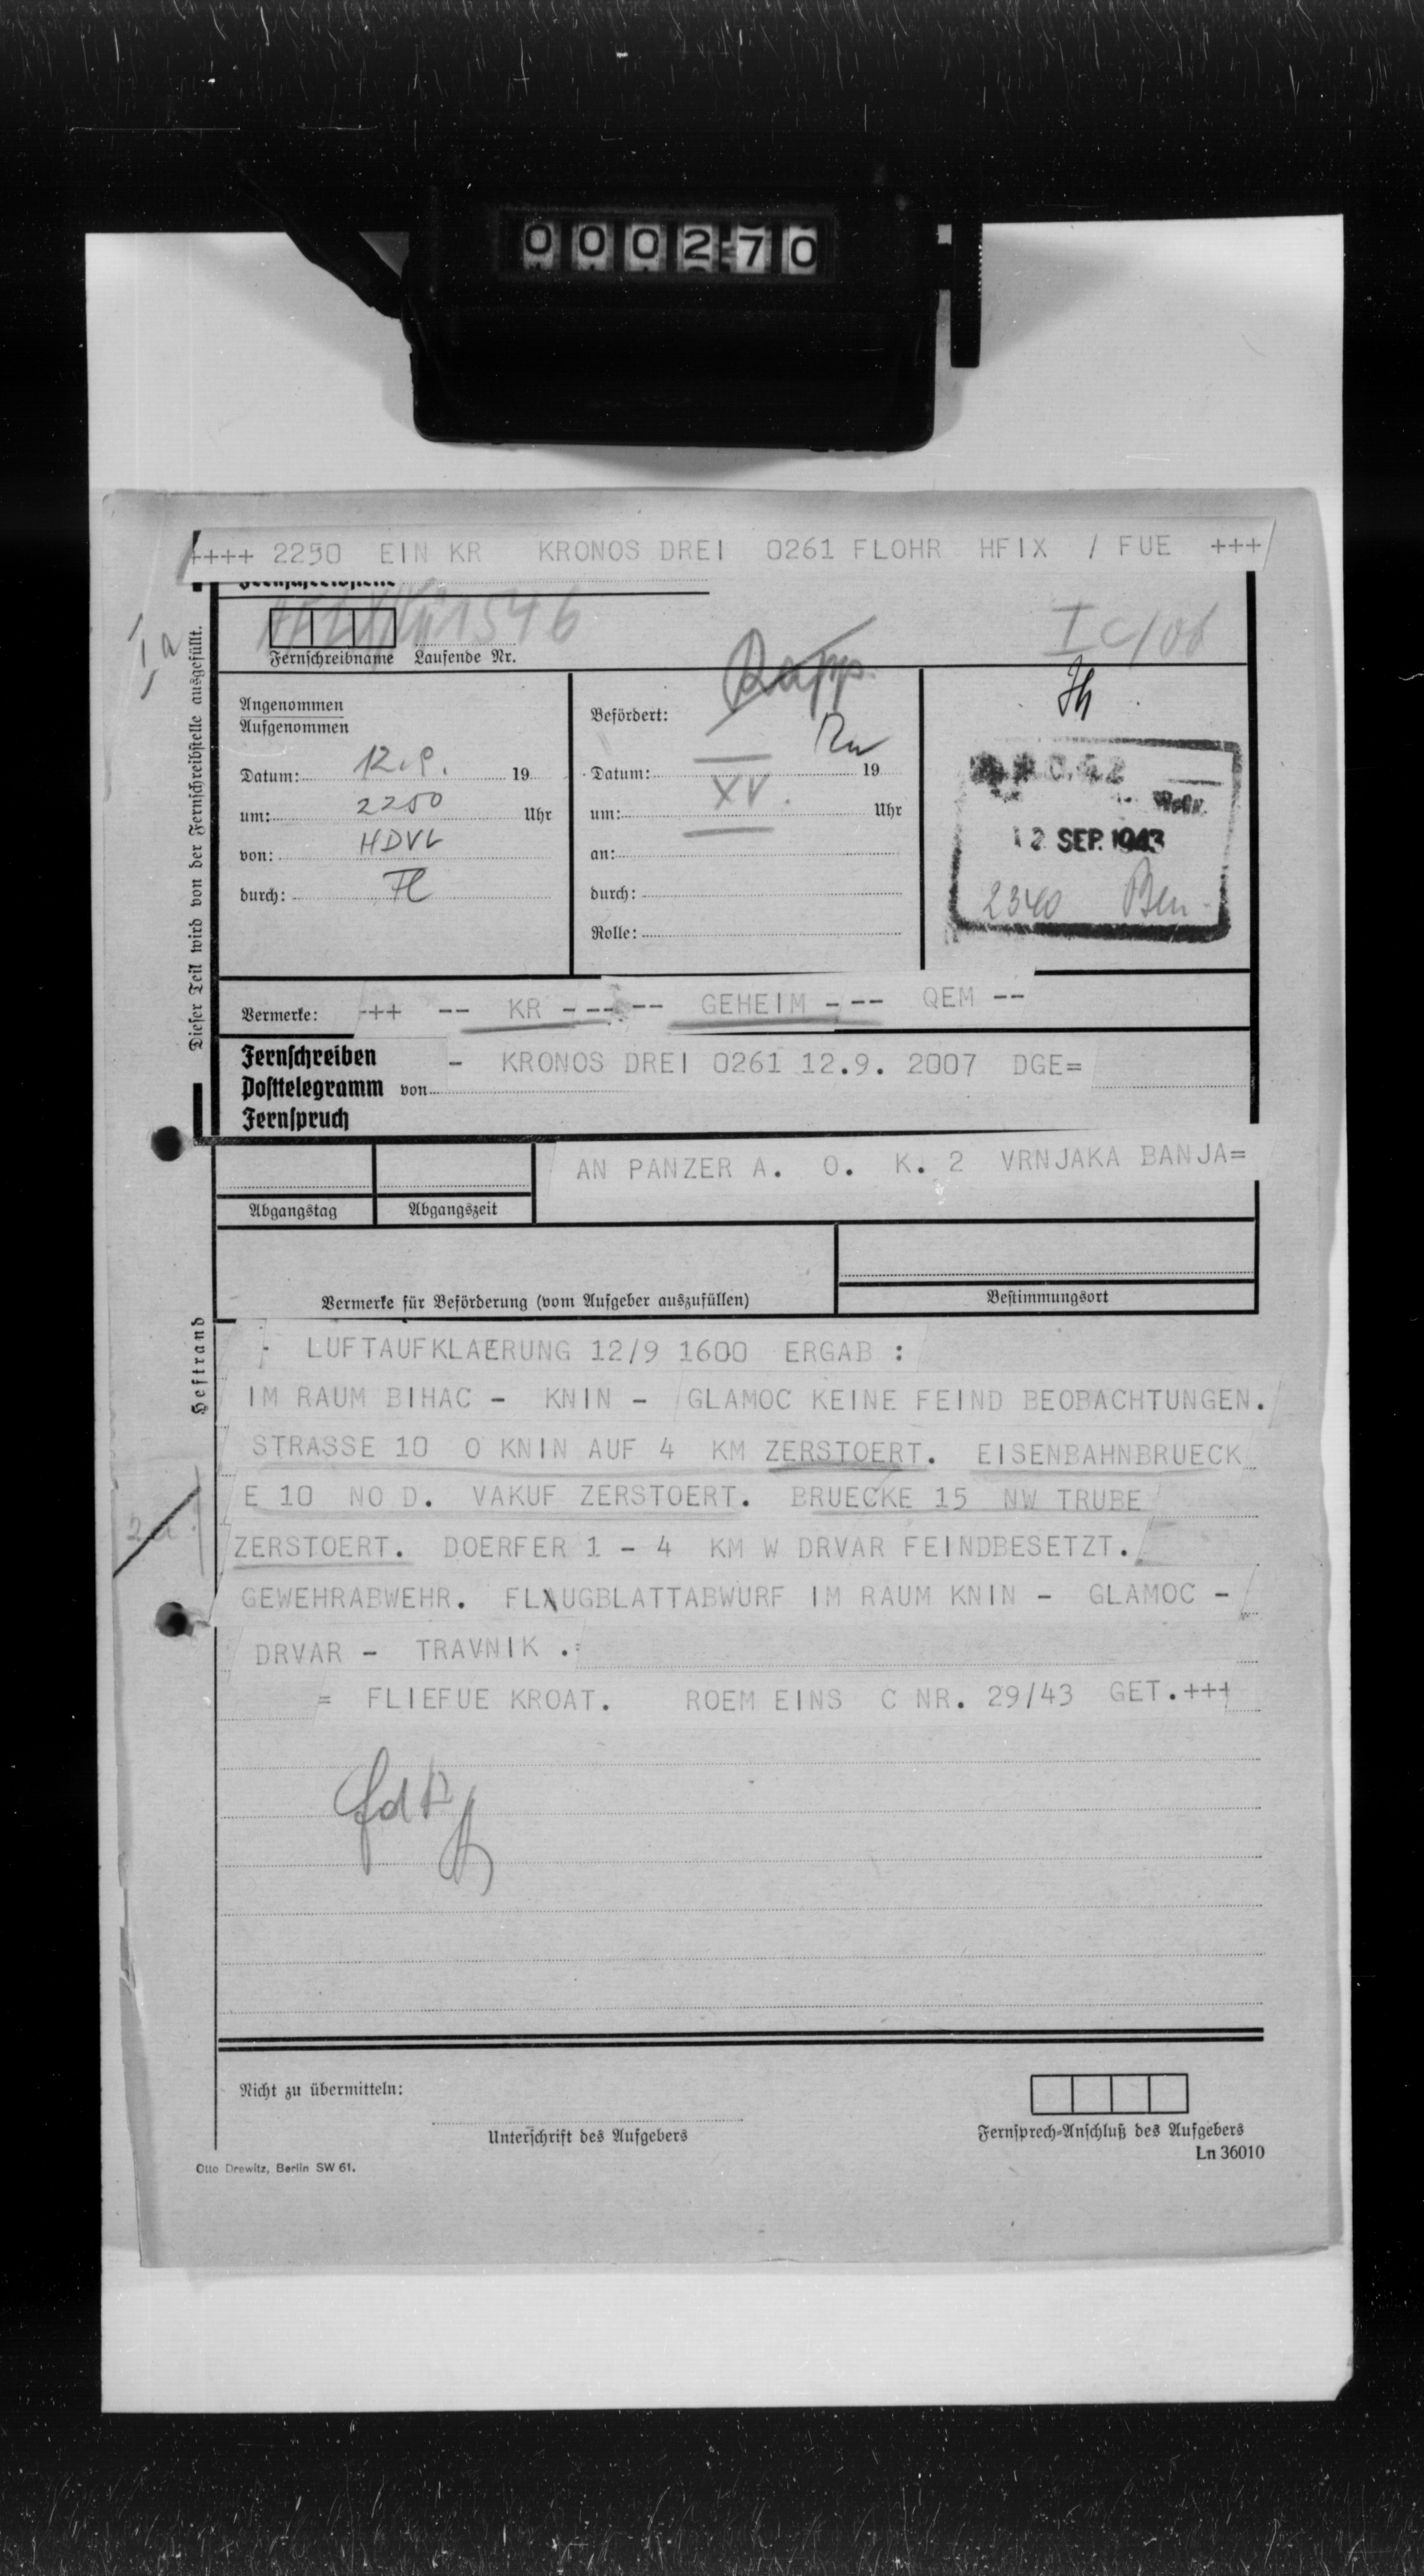 000270
++++ 2250 EIN KR KRONOS DREI 0261 FLOHR HFIX / FUE +++
1546
Fernschreibname Laufende Nr.
I c/
I a
Dieser Teil wird von der Fernschreibstelle ausgefüllt.
Angenommen
Aufgenommen
Datum: 12.9. 19
um: 2250 Uhr
von: HDVL
durch: Fl
Befördert:
Datum: 19
XV.
um: Uhr
an:
durch:
Rolle:
12 SEP. 1943
2340
Vermerke: -++ -- KR - -- -- GEHEIM - -- QEM --
Fernschreiben
Posttelegramm von
Fernspruch
- KRONOS DREI 0261 12.9. 2007 DGE=
AN PANZER A. O. K. 2 VRNJAKA BANJA=
Abgangstag Abgangszeit
Vermerke für Beförderung (vom Aufgeber auszufüllen) Bestimmungsort
Heftrand
- LUFTAUFKLAERUNG 12/9 1600 ERGAB :
IM RAUM BIHAC - KNIN - GLAMOC KEINE FEIND BEOBACHTUNGEN.
STRASSE 10 O KNIN AUF 4 KM ZERSTOERT. EISENBAHNBRUECK
E 10 NO D. VAKUF ZERSTOERT. BRUECKE 15 NW TRUBE
ZERSTOERT. DOERFER 1 - 4 KM W DRVAR FEINDBESETZT.
GEWEHRABWEHR. FLAUGBLATTABWURF IM RAUM KNIN - GLAMOC -
DRVAR - TRAVNIK .=
= FLIEFUE KROAT. ROEM EINS C NR. 29/43 GET.+++
Nicht zu übermitteln:
Unterschrift des Aufgebers
Fernsprech-Anschluß des Aufgebers
Ln 36010
Otto Drewitz, Berlin SW 61.